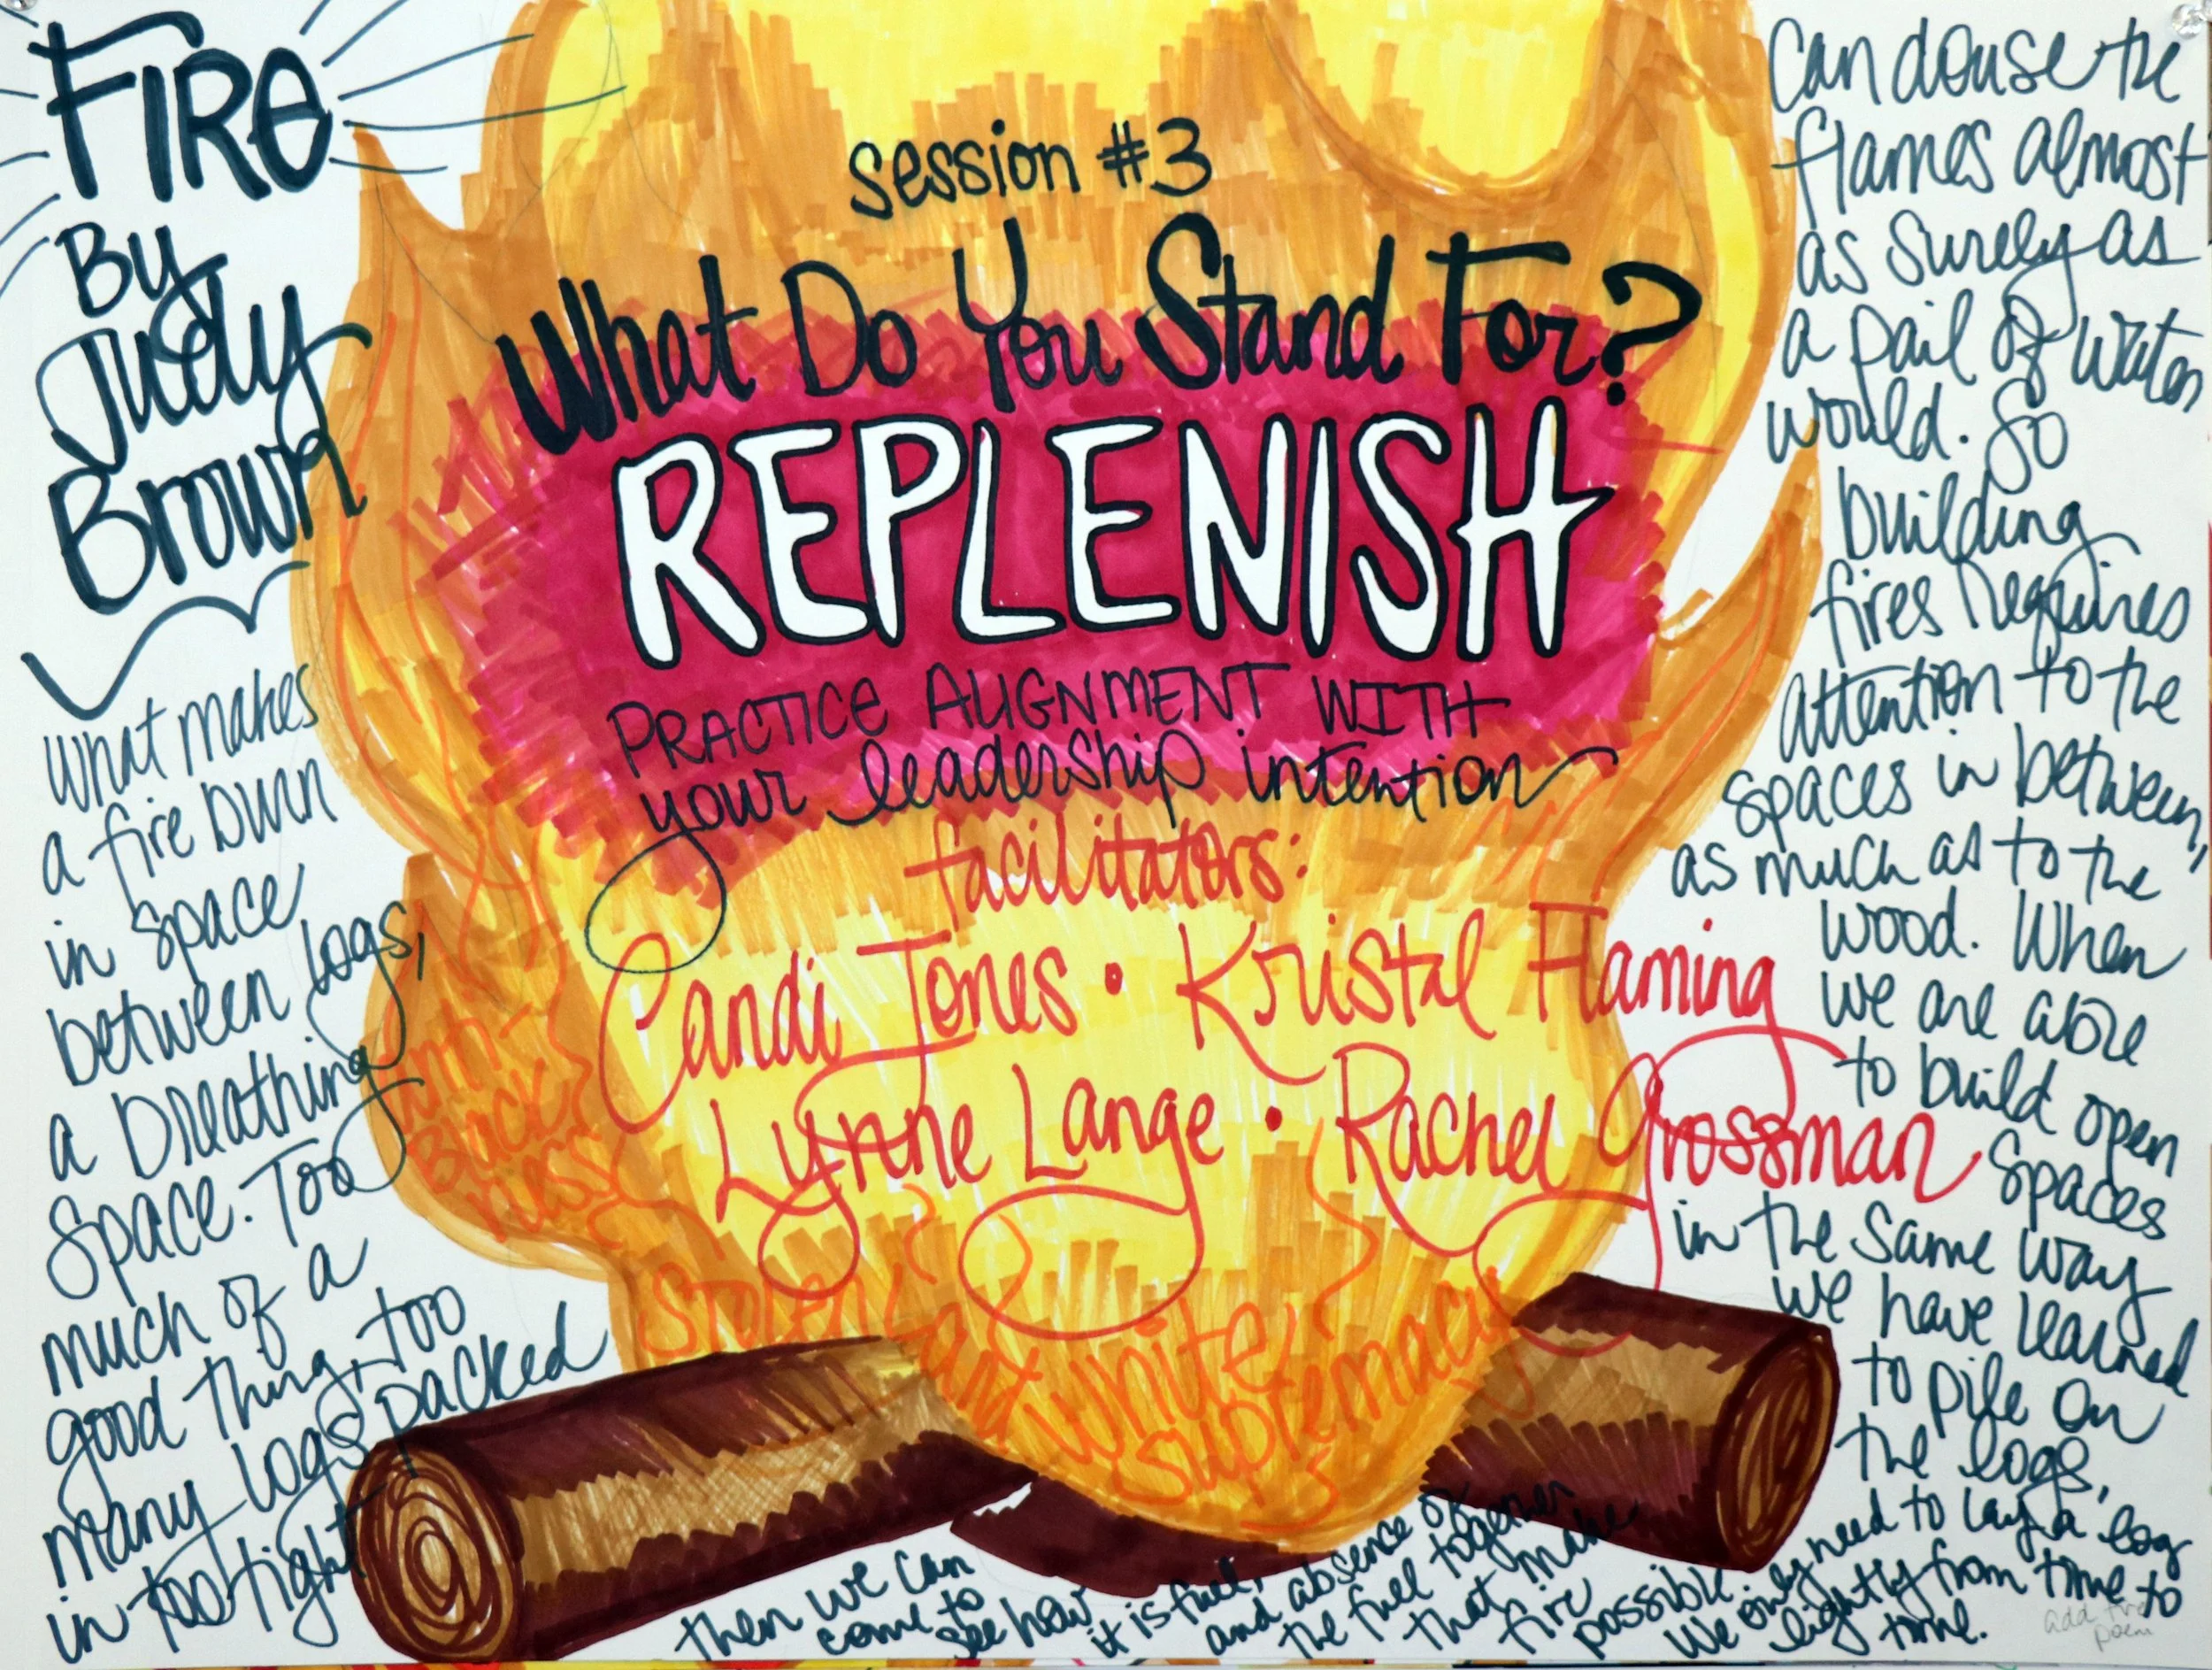 FIRE
By
Judy
Brown
What makes
a fire burn
in space
between logs,
a breathing
space. Too
much of a
good thing, too
many logs packed
in too tight
can douse the
flames almost
as surely as
a pail of water
would. So
building
fires requires
attention to the
spaces in between,
as much as to the
wood. When
we are able
to build open
spaces
in the same way
we have learned
to pile on
the logs,
then we can
come to
see how
it is fuel,
and absence of
the fuel together
that make
fire
possible.
We only need to lay a log
lightly from time to
time.
session #3
What Do You Stand For?
REPLENISH
PRACTICE ALIGNMENT WITH
your leadership intention
facilitators:
Candi Jones • Kristal Flaming
Lynne Lange • Rachel Grossman
Anti-
Black
ness
Stolen Land
White
Supremacy
add fire
poem